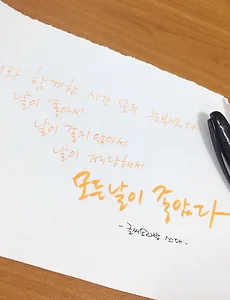 너와 함께한 시간 모두 눈부셨다
날이 좋아서
날이 좋지 않아서
날이 적당해서
모든 날이 좋았다